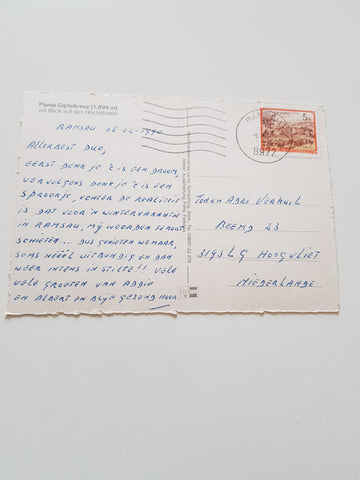 Planai Gipfelkreuz (1.894 m)
mit Blick auf den Hochstein
RAMSAU 06-02-1990
ALLERBEST DUO,
EERST DENK JE 'T IS EEN DROOM,
VERVOLGENS DENK JE 'T IS EEN
SPROOKJE, ECHTER DE REALITEIT
IS DAT VOOR 'N WINTERVAKANTIE
IN RAMSAU, MIJ WOORDEN TEKORT
SCHIETEN... DUS GENIETEN WE MAAR,
SOMS HÉÉÉL UITBUNDIG EN DAN
WEER INTENS IN STILTE!! VELE
VELE GROETEN VAN ADDIE
EN ALBERT EN BLIJF GEZOND HOOR.
TON EN ADRI VERKUIL
BEEMD 23
3193 LG HOOGVLIET
NIEDERLANDE
5
8972